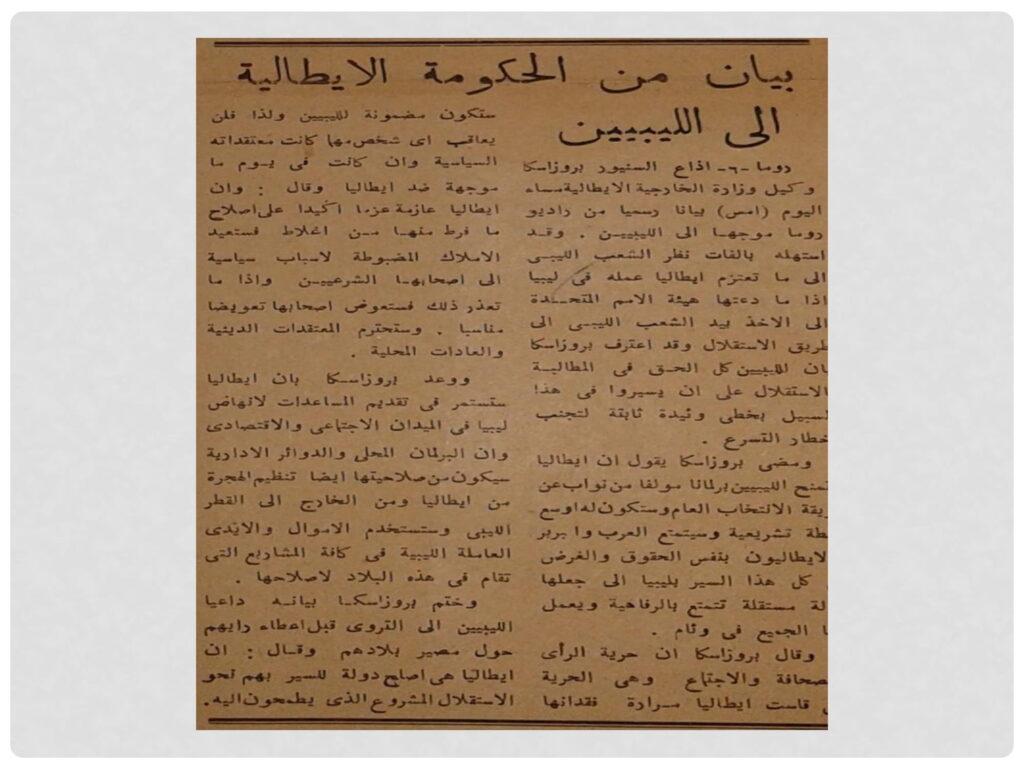 بيان من الحكومة الايطالية
الى الليبيين
روما -٦- اذاع السنيور بروزاسكا
وكيل وزارة الخارجية الايطالية مساء
اليوم (امس) بيانا رسميا من راديو
روما موجهـا الى الليبييـن . وقـد
استهله بالفات نظر الشعب الليبى
الى ما تعتزم ايطاليا عمله فى ليبيا
اذا ما دعتها هيئة الامم المتحـدة
الى الاخذ بيد الشعب الليبى الى
طريق الاستقلال وقد اعترف بروزاسكا
ان لليبيين كل الحـق فى المطالبة
الاستقلال على ان يسيروا فى هذا
لسبيل بخطى وئيدة ثابتة لتجنب
خطار التسرع .
ومضى بروزاسكا يقول ان ايطاليا
تمنح الليبيين برلمانا مولفا من نواب عن
يقة الانتخاب العام وستكون له اوسع
طة تشريعية وسيتمتع العرب وا بربر
لايطاليون بنفس الحقوق والغرض
كل هذا السير بليبيا الى جعلها
لة مستقلة تتمتع بالرفاهية ويعمل
ا الجميع فى وئام .
وقال بروزاسكا ان حرية الرأى
لصحافة والاجتماع وهى الحرية
قاست ايطاليا مـرارة فقدانها
ستكون مضمونة لليبيين ولذا فلن
يعاقب اى شخص مهما كانت معتقداته
السياسية وان كانت فى يـوم ما
موجهة ضد ايطاليا وقال : وان
ايطاليا عازمة عزما اكيدا على اصلاح
ما فرط منهـا مـن اغلاط فستعيد
الاملاك المضبوطة لاسباب سياسية
الى اصحابهـا الشرعييـن واذا ما
تعذر ذلك فستعوض اصحابها تعويضا
مناسبا . وستحترم المعتقدات الدينية
والعادات المحلية .
ووعد بروزاسـكا بان ايطاليا
ستستمر فى تقديم المساعدات لانهاض
ليبيا فى الميدان الاجتماعى والاقتصادى
وان البرلمان المحلى والدوائر الادارية
سيكون من صلاحيتها ايضا تنظيم الهجرة
من ايطاليا ومن الخارج الى القطر
الليبى وستستخدم الاموال والايدى
العاملة الليبية فى كافة المشاريع التى
تقام فى هذه البلاد لاصلاحها .
وختم بروزاسكـا بيانـه داعيا
الليبيين الى التروى قبل اعطاء رايهم
حول مصير بلادهم وقـال : ان
ايطاليا هى اصلح دولة للسير بهم نحو
الاستقلال المشروع الذى يطمحون اليه .